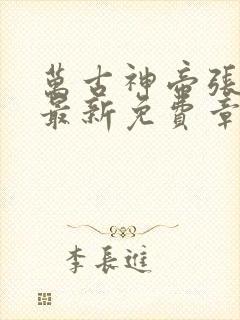 萬古神帝張
最新免費章
李長進